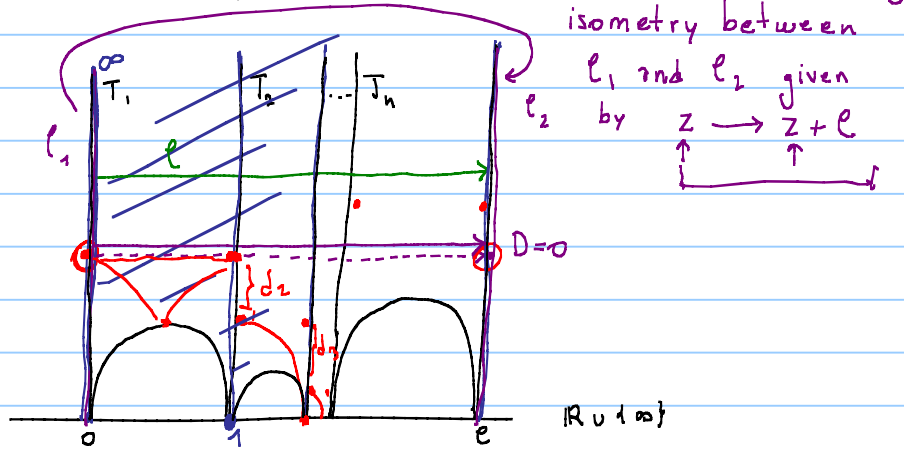 isometry between
ℓ₁ and ℓ₂ given
by z → z + ℓ
∞
T₁ T₂ ... Tₙ
ℓ₁
ℓ₂
ℓ
D=0
d₂
dₙ
0 1 ℓ
ℝ ∪ {∞}